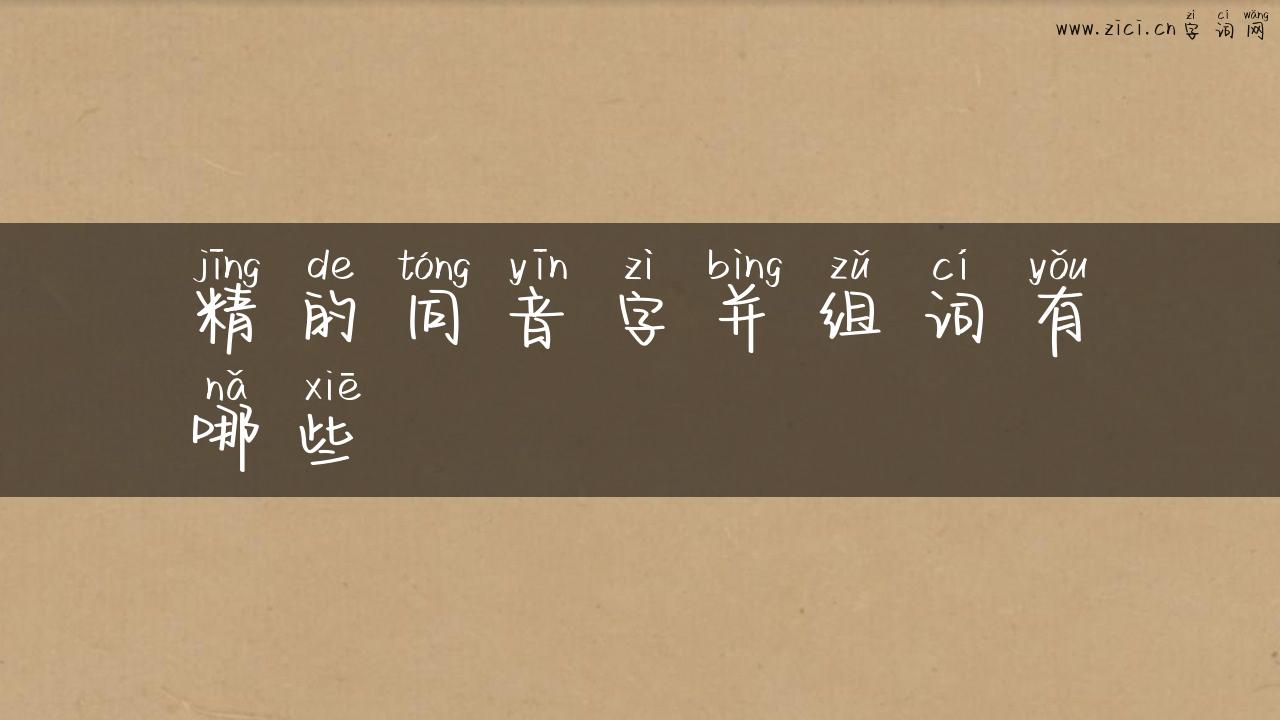 zì cí wǎng
www.zici.cn 字词网
jīng de tóng yīn zì bìng zǔ cí yǒu
精的同音字并组词有
nǎ xiē
哪些